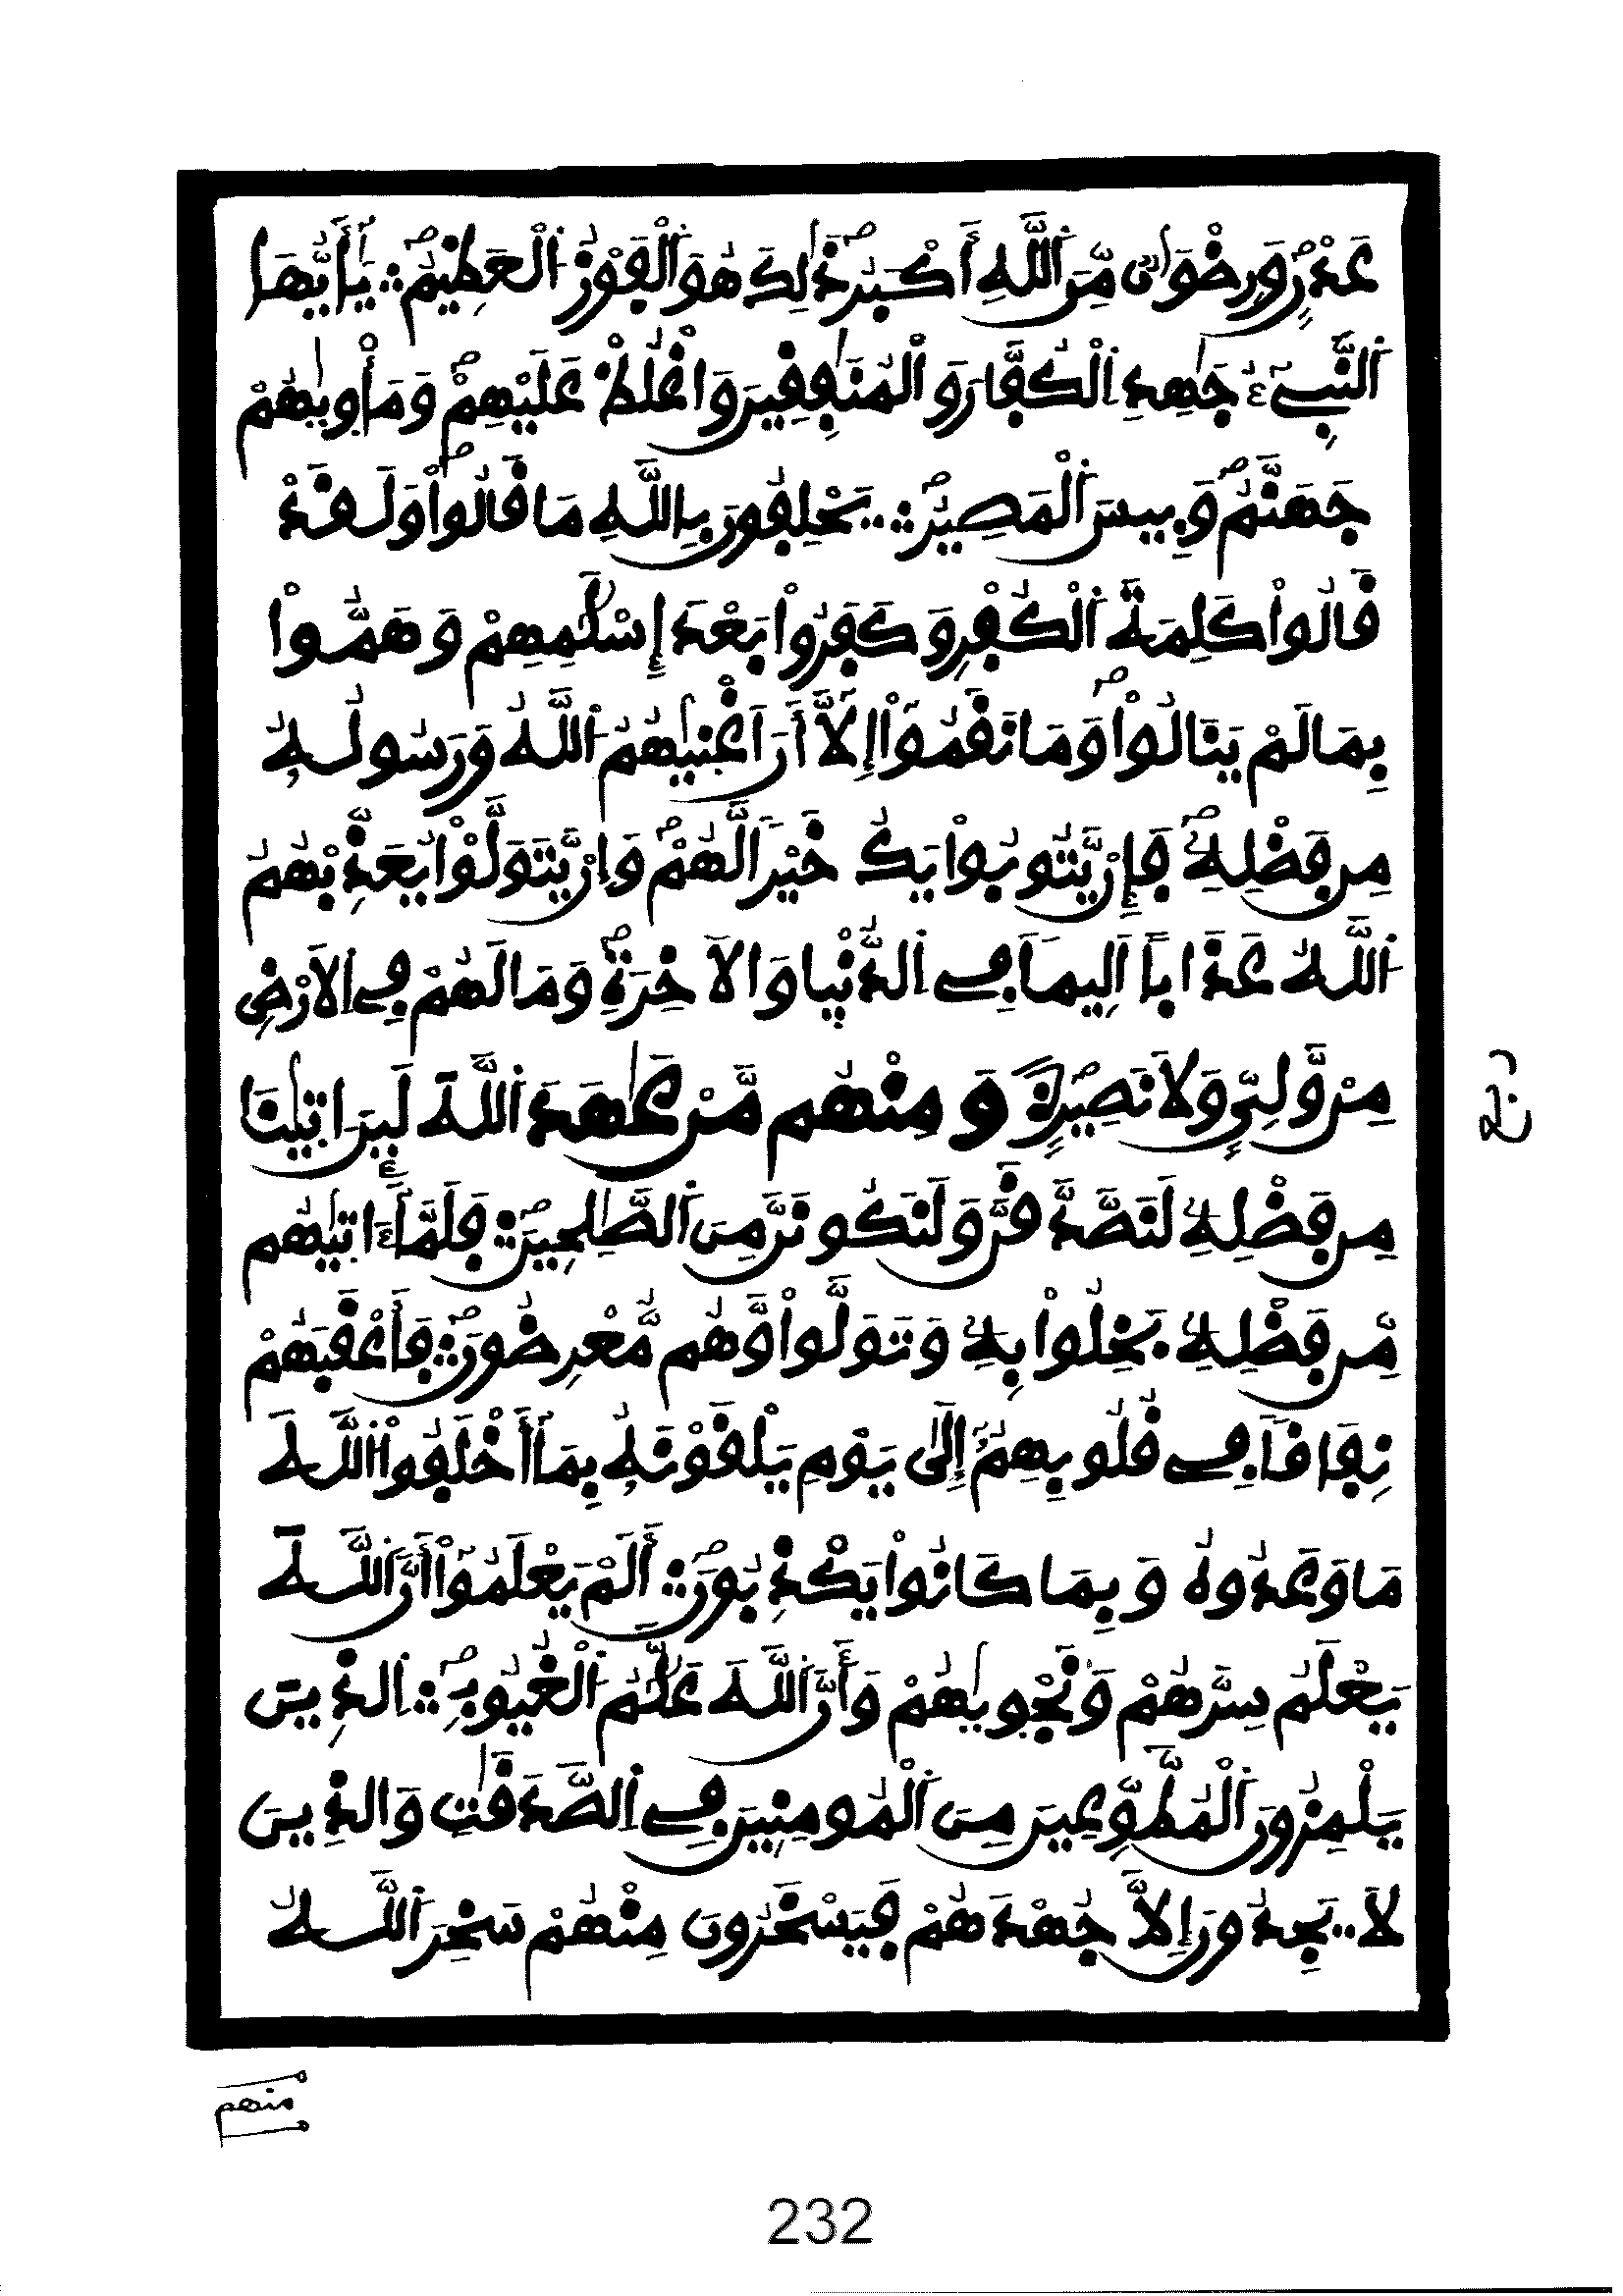 عَدْنٍ وَرِضْوَانٌ مِّنَ اَللَّهِ أَكْبَرُ ذَالِكَ هُوَ اَلْفَوْزُ اُلْعَظِيمُ يَا أَيُّهَا
اَلنَّبِيءُ جَاهِدِ اِلْكُفَّارَ وَالْمُنَافِقِينَ وَاغْلُظْ عَلَيْهِمْ وَمَأْوِيهُمْ
جَهَنَّمُ وَبِيسَ اَلْمَصِيرُ يَحْلِفُونَ بِاللَّهِ مَا قَالُواْ وَلَقَدْ
قَالُواْ كَلِمَةَ اَلْكُفْرِ وَكَفَرُواْ بَعْدَ إِسْلَٰمِهِمْ وَهَمُّواْ
بِمَا لَمْ يَنَالُواْ وَمَا نَقَمُواْ إِلَّا أَنَ اَغْنِيهُمُ اُللَّهُ وَرَسُولُهُ
مِن فَضْلِهِ فَإِنْ يَّتُوبُواْ يَكُ خَيْراً لَّهُمْ وَإِنْ يَّتَوَلَّوْا يُعَذِّبْهُمُ
اُللَّهُ عَذَاباً اَلِيماً فِي اِلدُّنْيَا وَالَاخِرَةِ وَمَا لَهُمْ فِي اِلَارْضِ
مِنْ وَّلِيٍّ وَلَا نَصِيرٍ وَمِنْهُم مَّنْ عَٰهَدَ اَللَّهَ لَئِنَ اٰتِينَا
مِن فَضْلِهِ لَنَصَّدَّقَنَّ وَلَنَكُونَنَّ مِنَ اَلصَّٰلِحِينَ فَلَمَّا ءَاتِيهُم
مِّن فَضْلِهِ بَخِلُواْ بِهِ وَتَوَلَّواْ وَّهُم مُّعْرِضُونَ فَأَعْقَبَهُمْ
نِفَاقاً فِي قُلُوبِهِمُ إِلَىٰ يَوْمِ يَلْقَوْنَهُ بِمَا أَخْلَفُواْ اُللَّهَ
مَا وَعَدُوهُ وَبِمَا كَانُواْ يَكْذِبُونَ أَلَمْ يَعْلَمُواْ أَنَّ اَللَّهَ
يَعْلَمُ سِرَّهُمْ وَنَجْوِيٰهُمْ وَأَنَّ اَللَّهَ عَلَّٰمُ اُلْغُيُوبِ اِلذِينَ
يَلْمِزُونَ اَلْمُطَّوِّعِينَ مِنَ اَلْمُومِنِينَ فِي اِلصَّدَقَٰتِ وَالذِينَ
لَا يَجِدُونَ إِلَّا جُهْدَهُمْ فَيَسْخَرُونَ مِنْهُمْ سَخِرَ اَللَّهُ
ربع
منهم
232